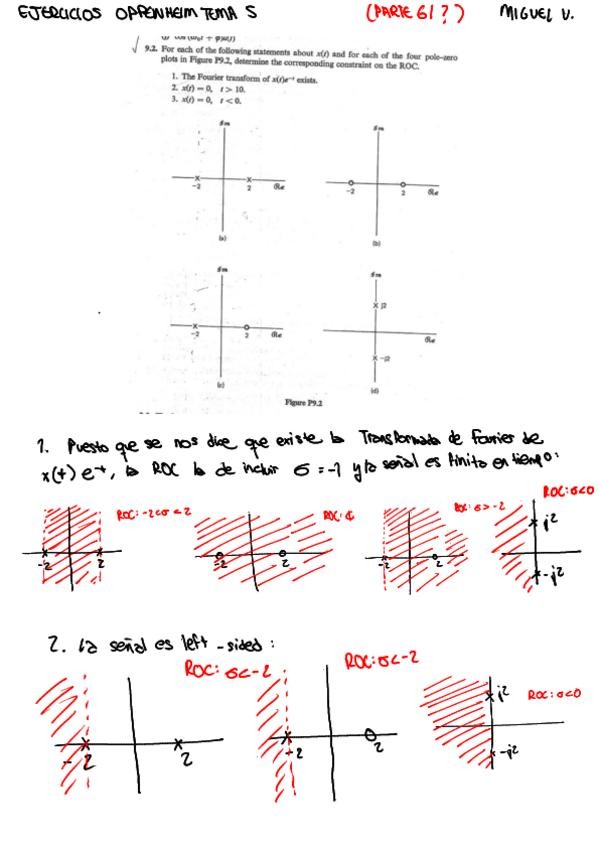 EJERCICIOS OPPENHEIM TEMA 5 (PARTE 6/?) MIGUEL V.
9.2. For each of the following statements about x(t) and for each of the four pole-zero
plots in Figure P9.2, determine the corresponding constraint on the ROC.
1. The Fourier transform of x(t)e⁻ᵗ exists.
2. x(t) = 0, t > 10.
3. x(t) = 0, t < 0.
Im
-2 2 Re
(a)
Im
-2 2 Re
(b)
Im
-2 2 Re
(c)
Im
j2
Re
-j2
(d)
Figure P9.2
1. Puesto que se nos dice que existe la Transformada de Fourier de
x(t) e⁻ᵗ, la ROC ha de incluir σ = -1 y la señal es finita en tiempo:
ROC: -2<σ<2
-2 2
ROC: ₵
-2 2
ROC: σ>-2
-2 2
ROC: σ<0
j2
-j2
2. La señal es left-sided:
ROC: σ<-2
-2 2
ROC: σ<-2
-2 2
j2 ROC: σ<0
-j2